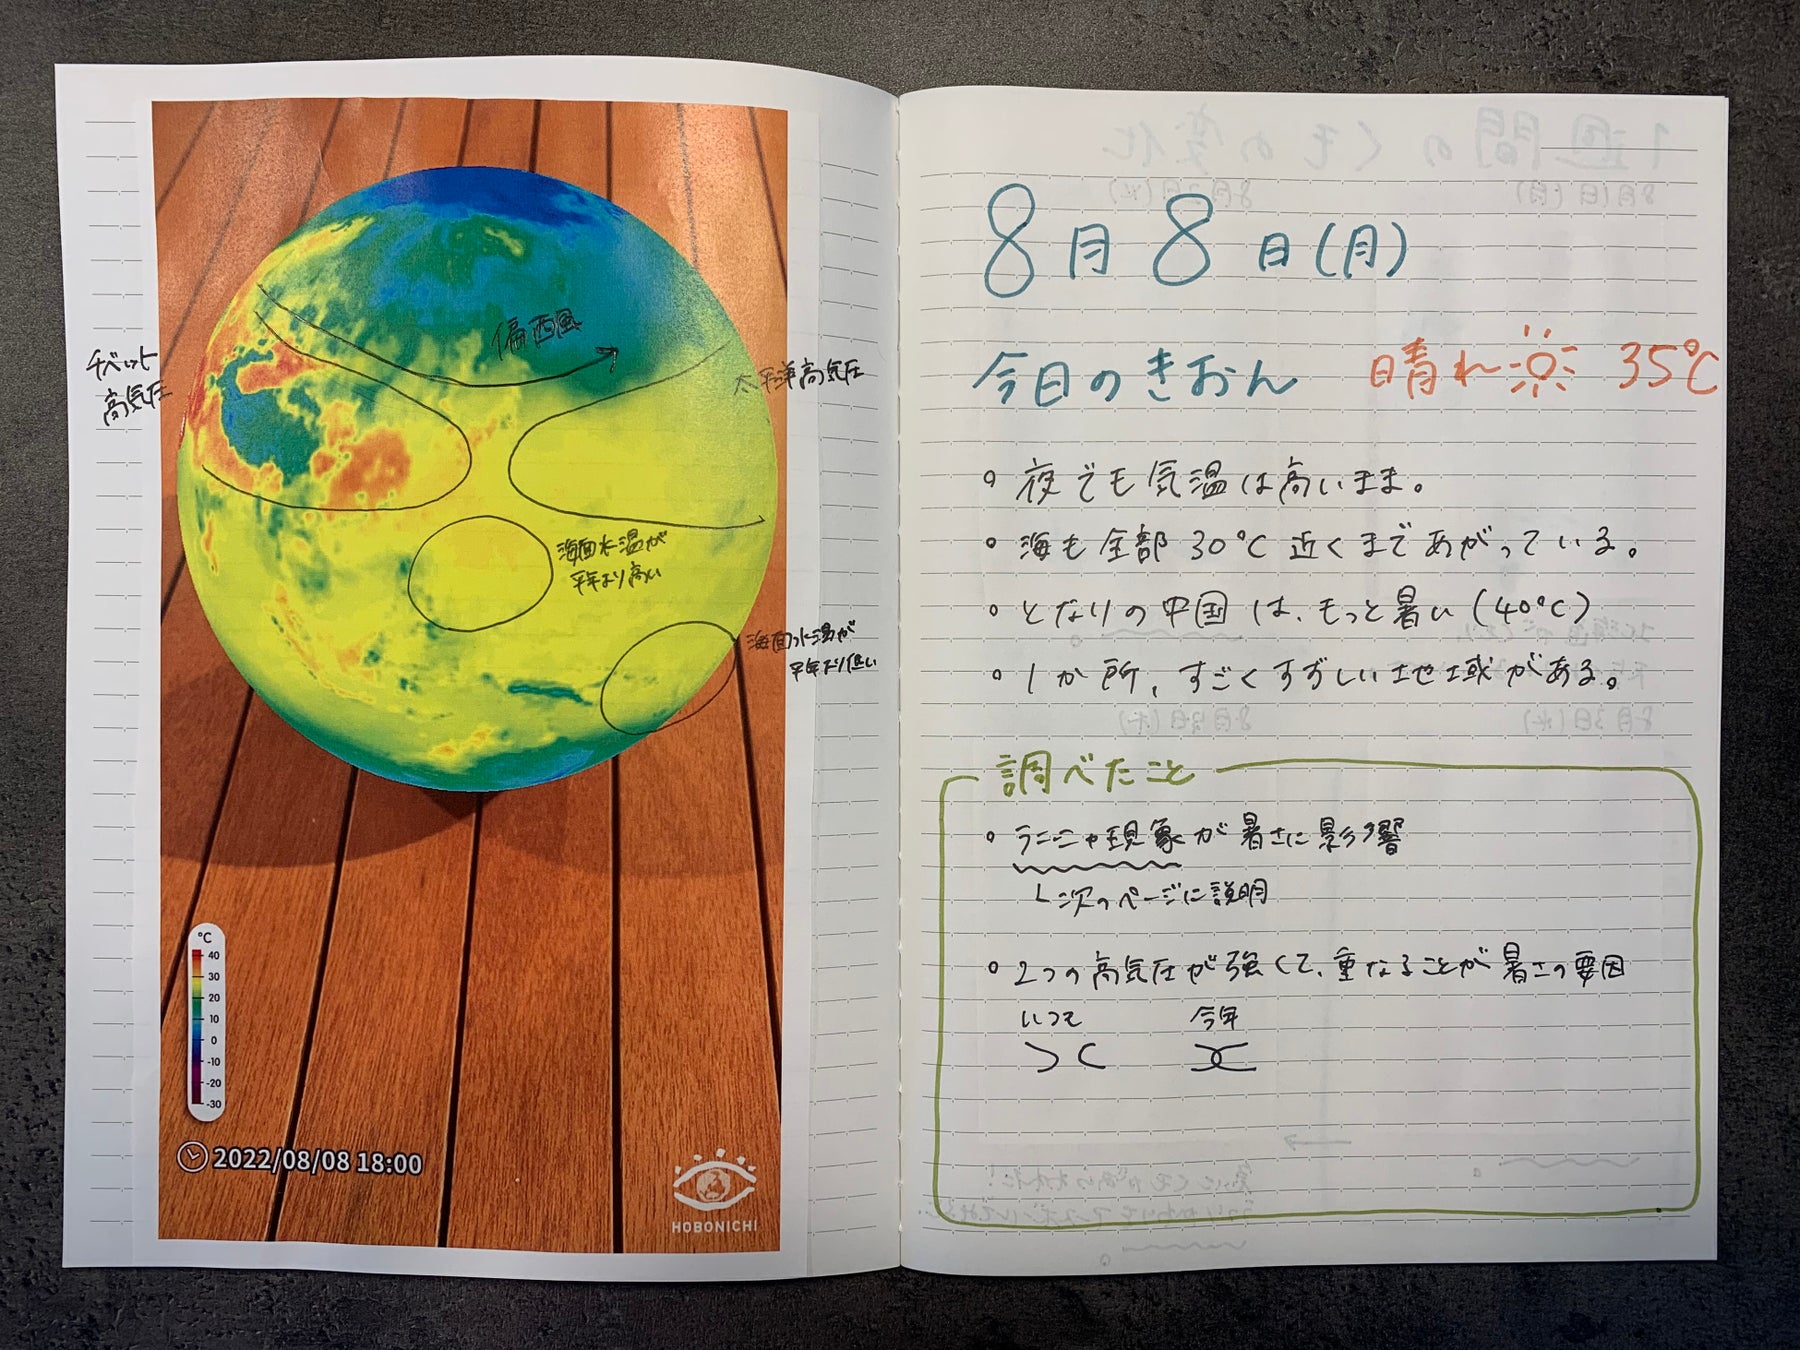 偏西風
チベット
高気圧
太平洋高気圧
海面水温が
平年より高い
海面水温が
平年より低い
°C
40
30
20
10
0
-10
-20
-30
2022/08/08 18:00
HOBONICHI
8月8日(月)
今日のきおん 晴れ 35℃
夜でも気温は高いまま。
海も全部30℃近くまであがっている。
となりの中国は、もっと暑い(40℃)
1か所、すごくすずしい地域がある。
調べたこと
ラニーニャ現象が暑さに影響
次のページに説明
2つの高気圧が強くて、重なることが暑さの要因
いつも 今年
1週間のくもの変化
8月1日(月) 8月2日(火)
8月3日(水)